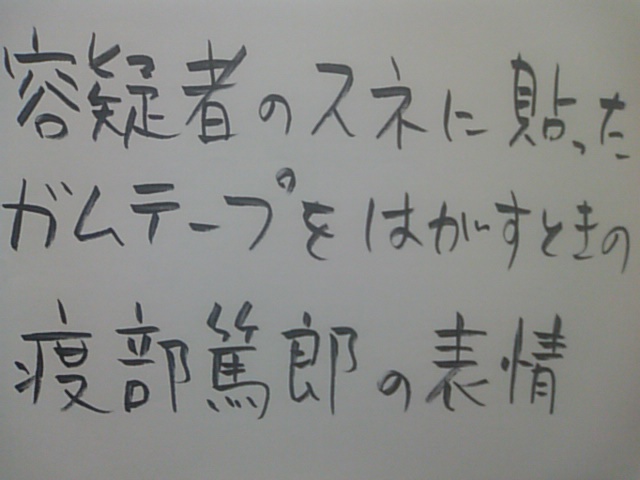 容疑者のスネに貼った
ガムテープをはがすときの
渡部篤郎の表情